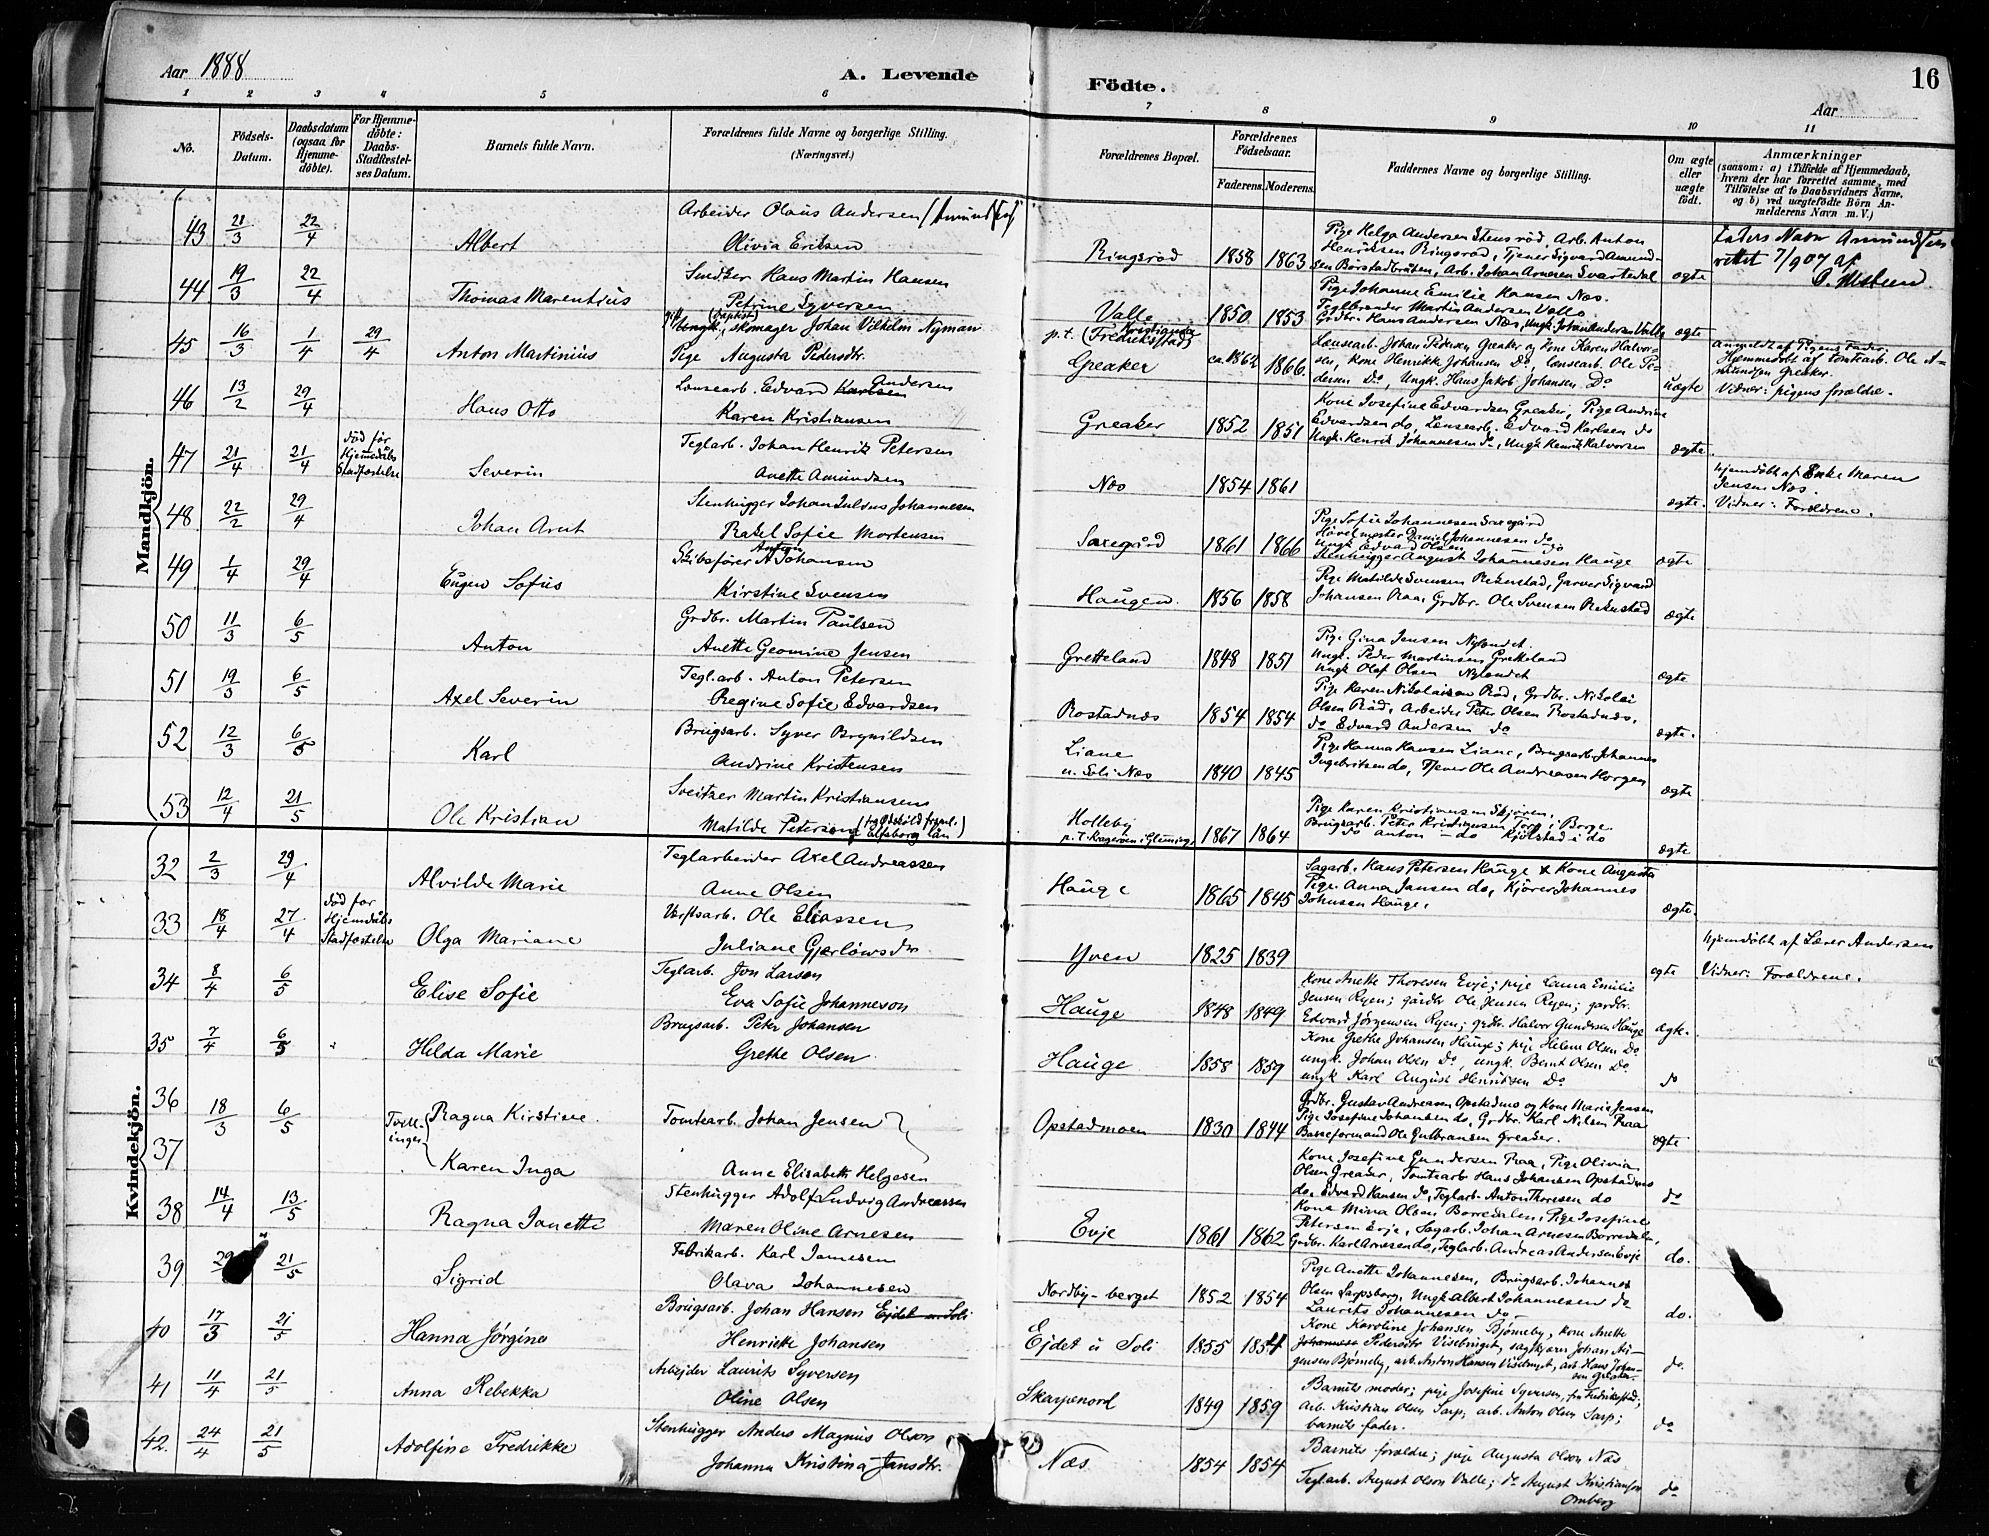 Aar 1888
A. Levende
Födte.
16
Aar
1 2 3 4 5 6 7 8 9 10 11
No.
Födsels-
Datum.
Daabsdatum
(ogsaa for
Hjemme-
döbte).
For Hjemme-
döbte:
Daabs-
Stadfæstel-
ses Datum.
Barnets fulde Navn.
Forældrenes fulde Navne og borgerlige Stilling.
(Næringsvei.)
Forældrenes Bopæl.
Forældrenes
Födselsaar.
Faderens. Moderens.
Faddernes Navne og borgerlige Stilling.
Om ægte
eller
uægte
födt.
Anmærkninger
(saasom: a) i Tilfælde af Hjemmedaab,
hvem der har forrettet samme, med
Tilföielse af to Daabsvidners Navne,
og b) ved uægtefödte Börn An-
melderens Navn m. V.)
Mandkjön.
43 21/3 22/4 Albert
Arbeider Olaus Andersen (Amundsen)
Olivia Eriksen
Ringsrød 1858 1863
Pige Helga Andersen Stensrød, Arb. Anton
Henriksen Ringsrød, Tjener Sigvard Amund-
sen Borstadbråten, Arb. Johan Arnesen Svartedal
ægte
Faders Navn Amundsen
rettet 7/9 07 af
44 19/3 22/4 Thomas Marentius
Snedker Hans Martin Hansen
Petrine Syversen
Valle 1850 1853
Pige Johanne Emilie Hansen Næs.
Teglbrænder Martin Andersen Valle
Grdbr. Hans Andersen Næs, Ungk. Johan Andersen Valle
ægte
45 16/3 1/4 29/4 Anton Martinius
(Baptist)
Ungk., skomager Johan Vilhelm Nyman
Pige Augusta Pedersdtr.
p.t. (Fredrikstad)
Greaker ca. 1862 1866.
Lensearb. Johan Pedersen Greaker og kone Karen Halvor-
sen, kone Henrikke Johansen Do, lensearb. Ole Pe-
dersen Do, Ungk. Hans Jakob Johansen Do
uægte
Anmeldt af Pigens Fader.
Hjemmedøbt af tomtearb. Ole A-
mundsen Greaker.
Vidner: pigens forældre.
46 13/2 29/4 Hans Otto
Lensearb. Edvard Karlsen Andersen
Karen Kristiansen
Greaker 1852 1851
Kone Josefine Edvardsen Greaker, Pige Andrine
Edvardsen do, Lensearb. Edvard Karlsen do
Ungk. Henrik Johannesen do, Ungk Henrik Halvorsen
ægte.
47 21/4 21/4
død før
Hjemdåbs
Stadfæstelse
Severin
Teglarb. Johan Henrik Petersen
Anette Amundsen
Næs 1854 1861
ægte.
Hjemdøbt af Enke Maren
Jensen Næs.
Vidner: Forældrene.
48 22/2 29/4 Johan Arnt
Stenhugger Johan Julius Johannesen
Rakel Sofie Mortensen
Saxegård 1861 1866
Pige Sofie Johannesen Saxegård
Høvelmester Daniel Johannesen do
Ungk Edvard Olsen do
Stenhugger August Johannesen Hauge
ægte
49 1/4 29/4 Eugen Sofus
Skibsfører A Anton Johansen
Kirstine Svensen
Haugen 1856 1858
Pige Matilde Svensen Rekustad, Garver Sigvard
Johansen Raa, Grdbr. Ole Svensen Rekustad
ægte
50 11/3 6/5 Anton
Grdbr. Martin Paulsen
Anette Geomine Jensen
Gretteland 1848 1851
Pige Gina Jensen Nylandet
Ungk. Peder Martinsen Gretteland
Ungk Olaf Olsen Nylandet
ægte
51 19/3 6/5 Axel Severin
Teglarb. Anton Petersen
Regine Sofie Edvardsen
Rostadnæs 1854 1854
Pige Karen Nikolaisen Rød, Grdbr. Nikolai
Olsen Rød, Arbeider Peter Olsen Rostadnæs,
do Edvard Andersen do
ægte.
52 12/3 6/5 Karl
Brugsarb. Syver Brynildsen
Andrine Kristensen
Liane
u. Soli Næs 1840 1845
Pige Hanna Hansen Liane, Brugsarb. Johannes
Ingebritsen do, Tjener Ole Andreasen Horgen
ægte
53 12/4 21/5 Ole Kristian
Sveitzer Martin Kristiansen
Matilde Peterson
Elfsborg län
Holleby
1867 1864
Pige Karen Kristiansen Skjøren.
Brugsarb. Peter Kristiansen Torp i Borge
do Anton do Kjølstad i do
ægte
Kvindekjön.
32 2/3 29/4 Alvilde Marie
Teglarbeider Axel Andreassen
Anne Olsen
Hauge 1865 1845
Sagarb. Hans Petersen Hauge & Kone Augusta
Pige Anna Jansen do, Kjører Johannes
Johnsen Hauge.
ægte.
33 18/4 27/4
død før
Hjemdåbs
Stadfæstelse
Olga Mariane
Værftsarb. Ole Eliassen
Juliane Gjerløwsdtr
Yven 1825 1839
ægte
Hjemdøbt af Lærer Andersen
Vidner: Forældrene.
34 8/4 6/5 Elise Sofie
Teglarb. Jon Larson
Eva Sofie Johanneson
Hauge 1848 1849
Kone Anette Thoresen Evje; pige Laura Emilie
Jensen Ryen; gårdbr Ole Jensen Ryen; gårdbr.
Edvard Jörgensen Ryen; grdbr. Halvor Gundersen Hauge
ægte.
35 7/4 6/5 Helda Marie
Brugsarb. Peter Johansen
Grethe Olsen
Hauge 1858 1859
Kone Grethe Johansen Hauge; pige Helene Olsen Do
ungk. Johan Olsen Do, ungk. Bernt Olsen Do
ungk Karl August Henriksen Do
do
36 18/3 6/5
Tvill-
inger
Ragna Kirstine.
37 Karen Inga
Tomtearb. Johan Jensen
Anne Elisabeth Helgesen
Opstadmoen 1830 1844
Grdbr. Gustav Andreasen Opstadmo og Kone Marie Jensen
Pige Josefine Johansen do, Grdbr. Karl Nilsen Raa
Basseformand Ole Gulbransen Greaker.
ægte
Kone Josefine Gundersen Raa, Pige Olivia
Olsen Greaker, Tomtearb Hans Johansen Opstadmo
do, Edvard Hansen do, Teglarb. Anton Thoresen do
do
38 14/4 13/5 Ragna Janette
Stenhugger Adolf Ludvig Andreassen
Maren Oline Arnesen
Evje 1861 1862
Kone Mina Olsen Borredalen, Pige Josefine
Petersen Evje, Sagarb. Johan Arnesen Borredalen,
Grdbr. Karl Arnesen do, Teglarb. Andreas Andersen Evje
do.
39 21/5 Sigrid
Fabrikarb. Karl Jamesen
Olava Johannesen
Nordby-berget 1852 1854
Pige Anette Johannesen, Brugsarb. Johannes
Olsen Sarpsborg, Ungk Albert Johannesen do
Laurits Johannesen do
do.
40 17/3 21/5 Hanna Jørgine
Brugsarb. Johan Hansen Ejdet u. Soli
Henriette Johansen
Ejdet u Soli 1855 1854
Kone Karoline Johansen Bjørneby, kone Anette
Johannesen Pedersdtr Visebringet, sagkjører Johan An-
gensen Bjørneby, arb. Anton Hansen Visebringet, arb. Hans Johan-
sen Greaker.
do
41 11/4 21/5 Anna Rebekka
Arbejder Laurits Syversen
Oline Olsen
Skarpenord 1849 1859
Barnets moder; pige Josefine Syversen, fra Fredrikstad;
arb. Kristian Olsen Sarp; arb. Anton Olsen Sarp;
barnets fader.
do
42 24/4 21/5 Adolfine Fredrikke
Stenhugger Anders Magnus Olson
Johanna Kristina Jansdtr.
Næs 1854 1854
Barnets forældre; pige Augusta Olson Næs
Teglarb. August Olson Valle; do August Kristianson
Omberg
do